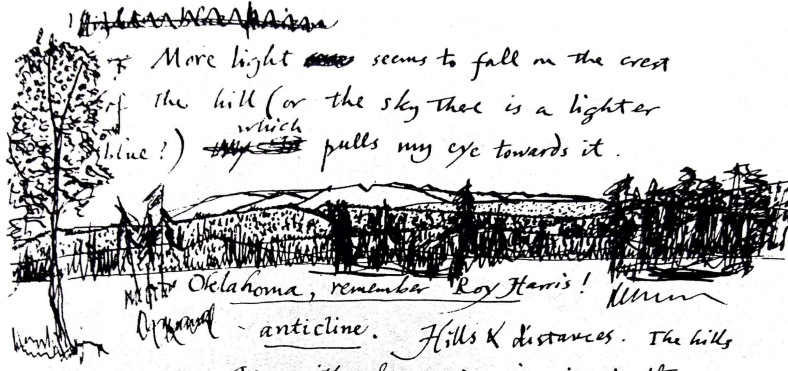 More light seems to fall on the crest
of the hill (or the sky there is a lighter
blue?) which pulls my eye towards it.
Oklahoma, remember Roy Harris!
anticline. Hills & distances. The hills